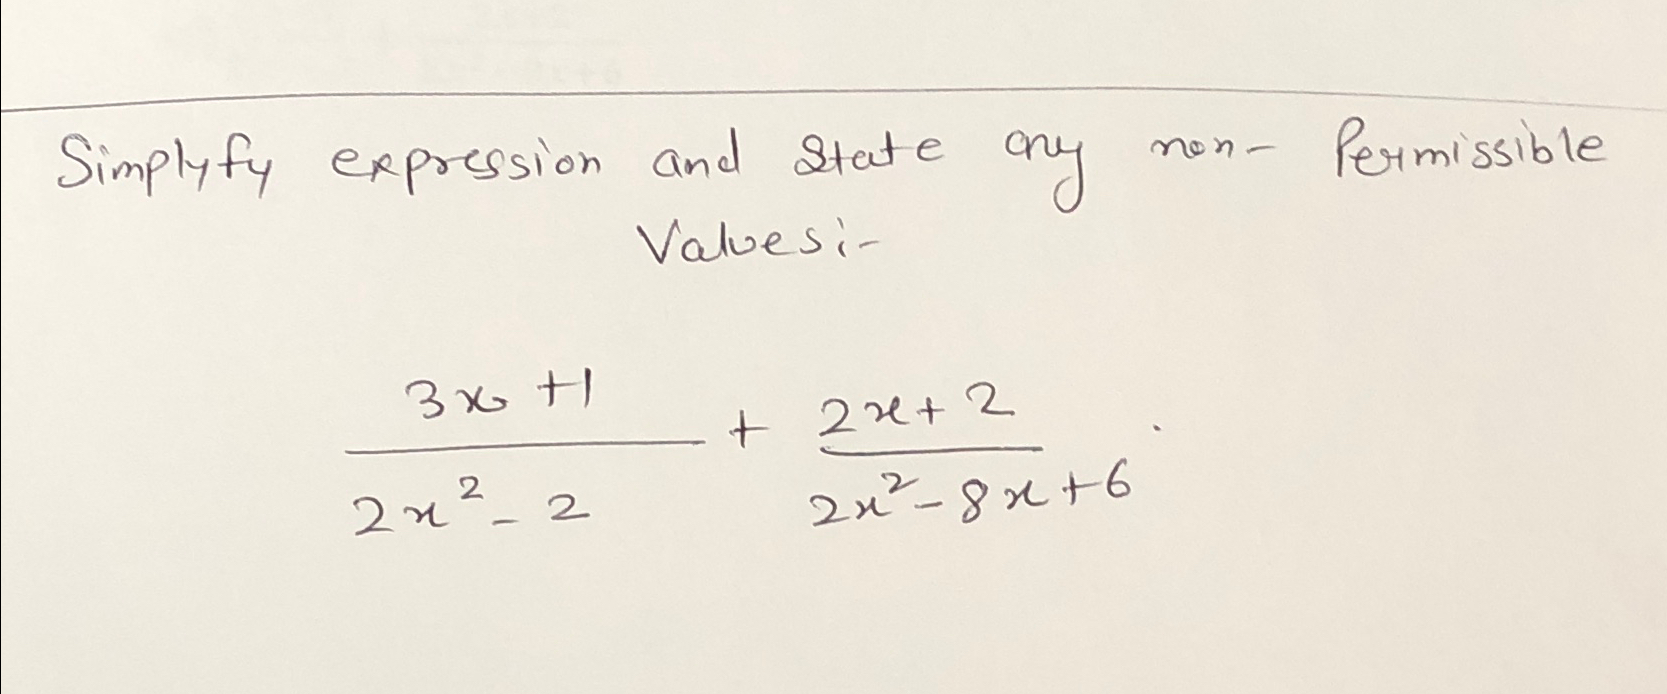 Simplyfy expression and State any non- Permissible
Values:-
3x +1 + 2x+ 2 .
2x² - 2 2x² - 8x +6